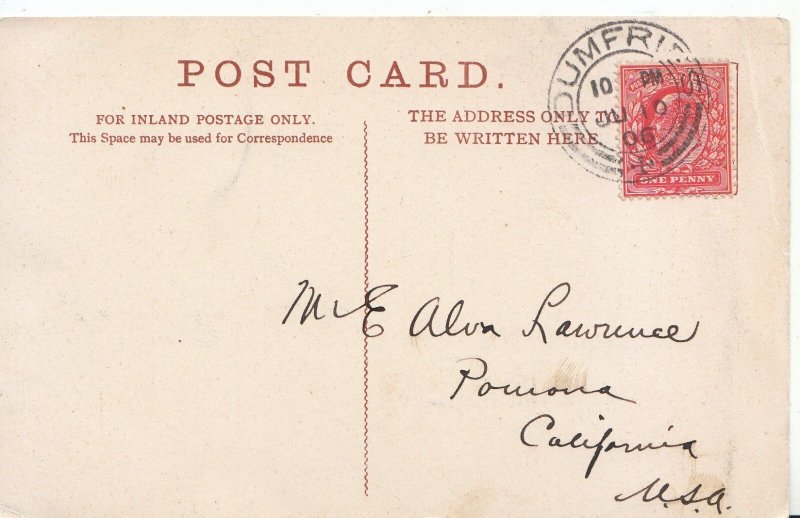 POST CARD.
FOR INLAND POSTAGE ONLY.
This Space may be used for Correspondence
THE ADDRESS ONLY TO
BE WRITTEN HERE.
DUMFRIES
10 PM
JU
06
ONE PENNY
M E Alva Lawrence
Pomona
California
U.S.A.